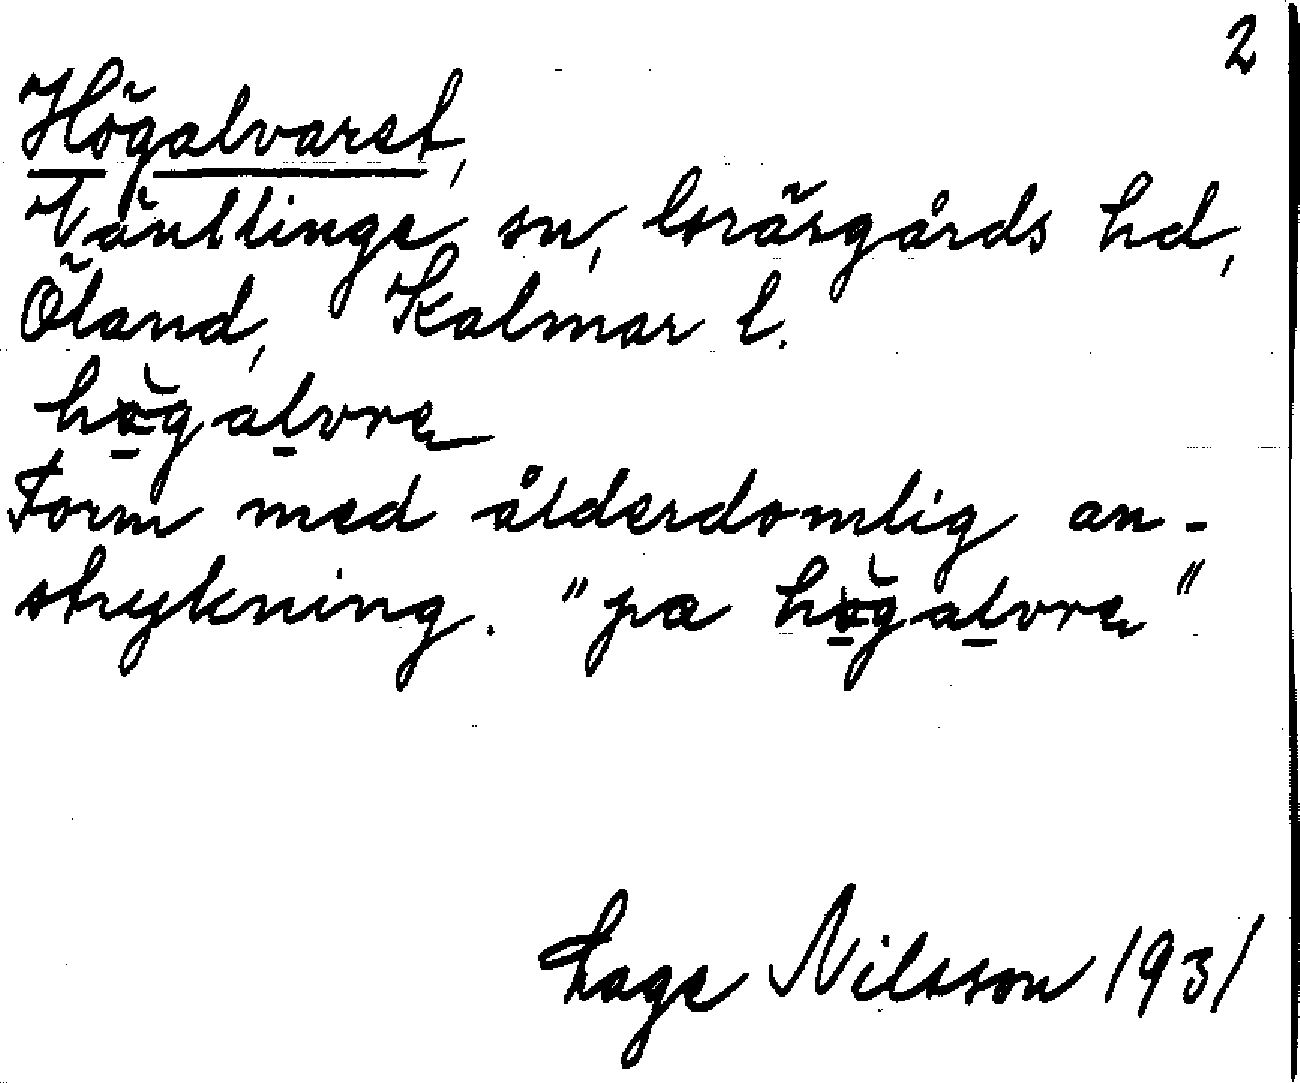 2
Högalvaret,
Ventlinge sn, Gräsgårds hd,
Öland, Kalmar l.
högalvre
Form med ålderdomlig an-
strykning. "pa högalvre"
Lage Nilsson 1931